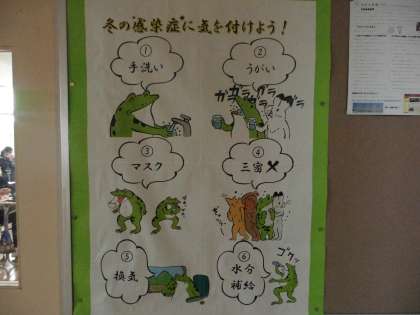 冬の感染症に気を付けよう！
①
手洗い
②
うがい
ガラガラガラ
③
マスク
④
三密✕
⑤
換気
⑥
水分
補給
ゴクッ